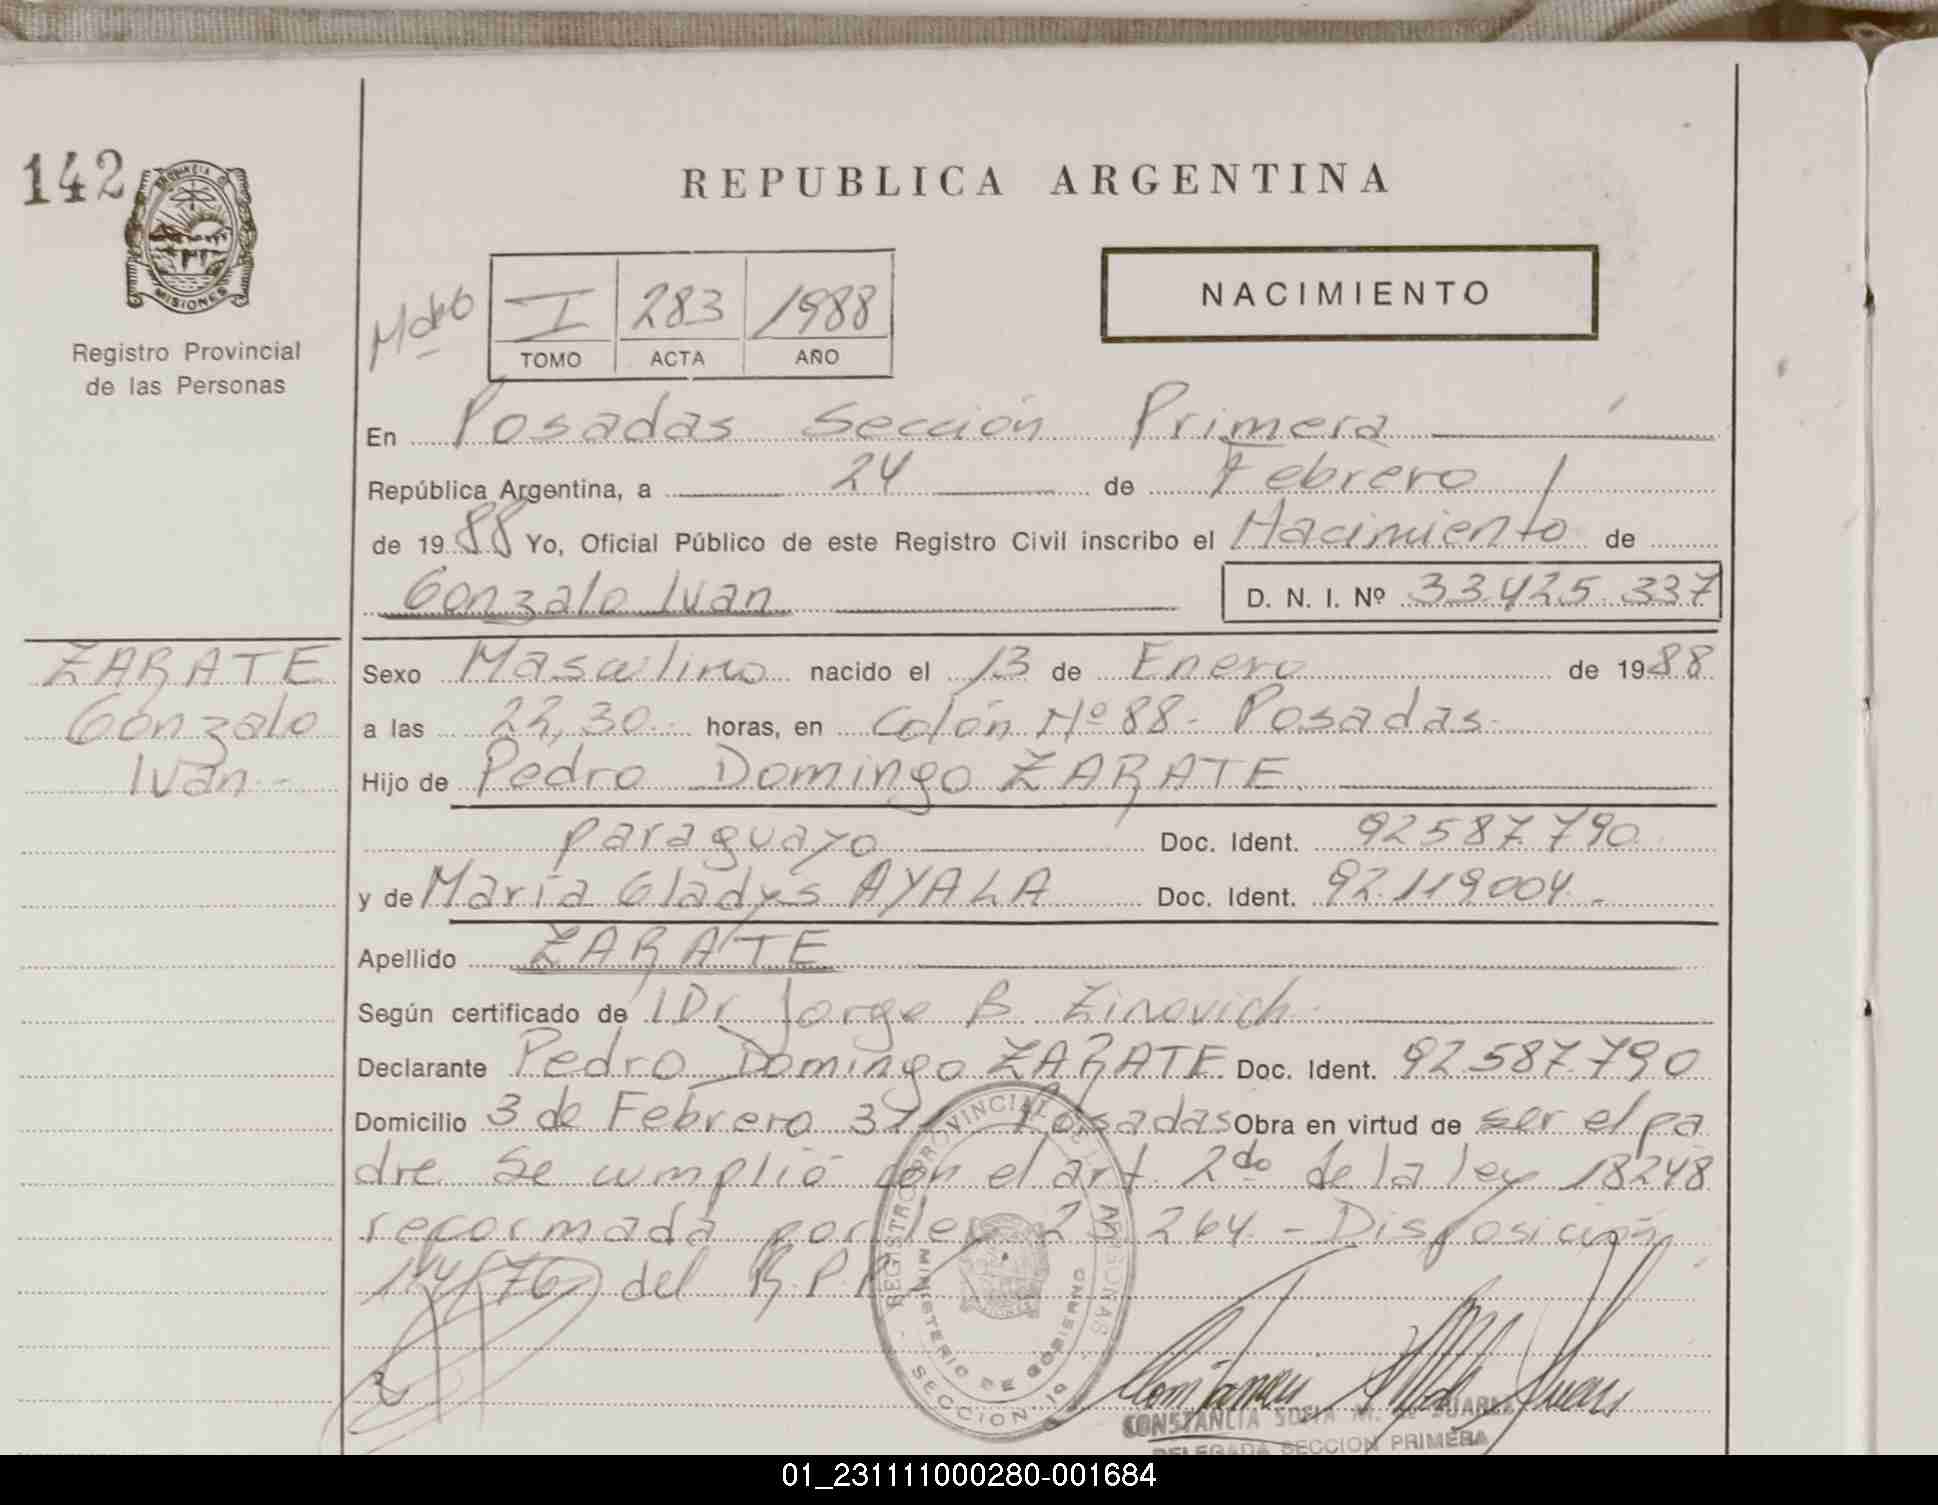 142
PROVINCIA D
MISIONES
Registro Provincial
de las Personas
REPUBLICA ARGENTINA
NACIMIENTO
I 283 1988
TOMO ACTA AÑO
En Posadas Sección Primera
República Argentina, a 24 de Febrero
de 1988 Yo, Oficial Público de este Registro Civil inscribo el Nacimiento de
Gonzalo Ivan D. N. I. Nº 33.425.337
ZARATE
Gonzalo
Ivan.-
Sexo Masculino nacido el 13 de Enero de 1988
a las 22,30. horas, en Colón Nº 88- Posadas-
Hijo de Pedro Domingo ZARATE
paraguayo Doc. Ident. 92587.790
y de María Gladys AYALA Doc. Ident. 92.119004.-
Apellido ZARATE
Según certificado de Dr Jorge B Zinovich
Declarante Pedro Domingo ZARATE Doc. Ident. 92587.790
Domicilio 3 de Febrero Posadas Obra en virtud de ser el pa
dre Se cumplió con el art. 2do de la ley 18248
reformada por ley 23264.- Disposición
14/76 del R.P.P
REGISTRO PROVINCIAL DE LAS PERSONAS
MINISTERIO DE GOBIERNO
SECCION 1º
CONSTANCIA SOFIA M. de SUAREZ
DELEGADA SECCION PRIMERA
01_231111000280-001684